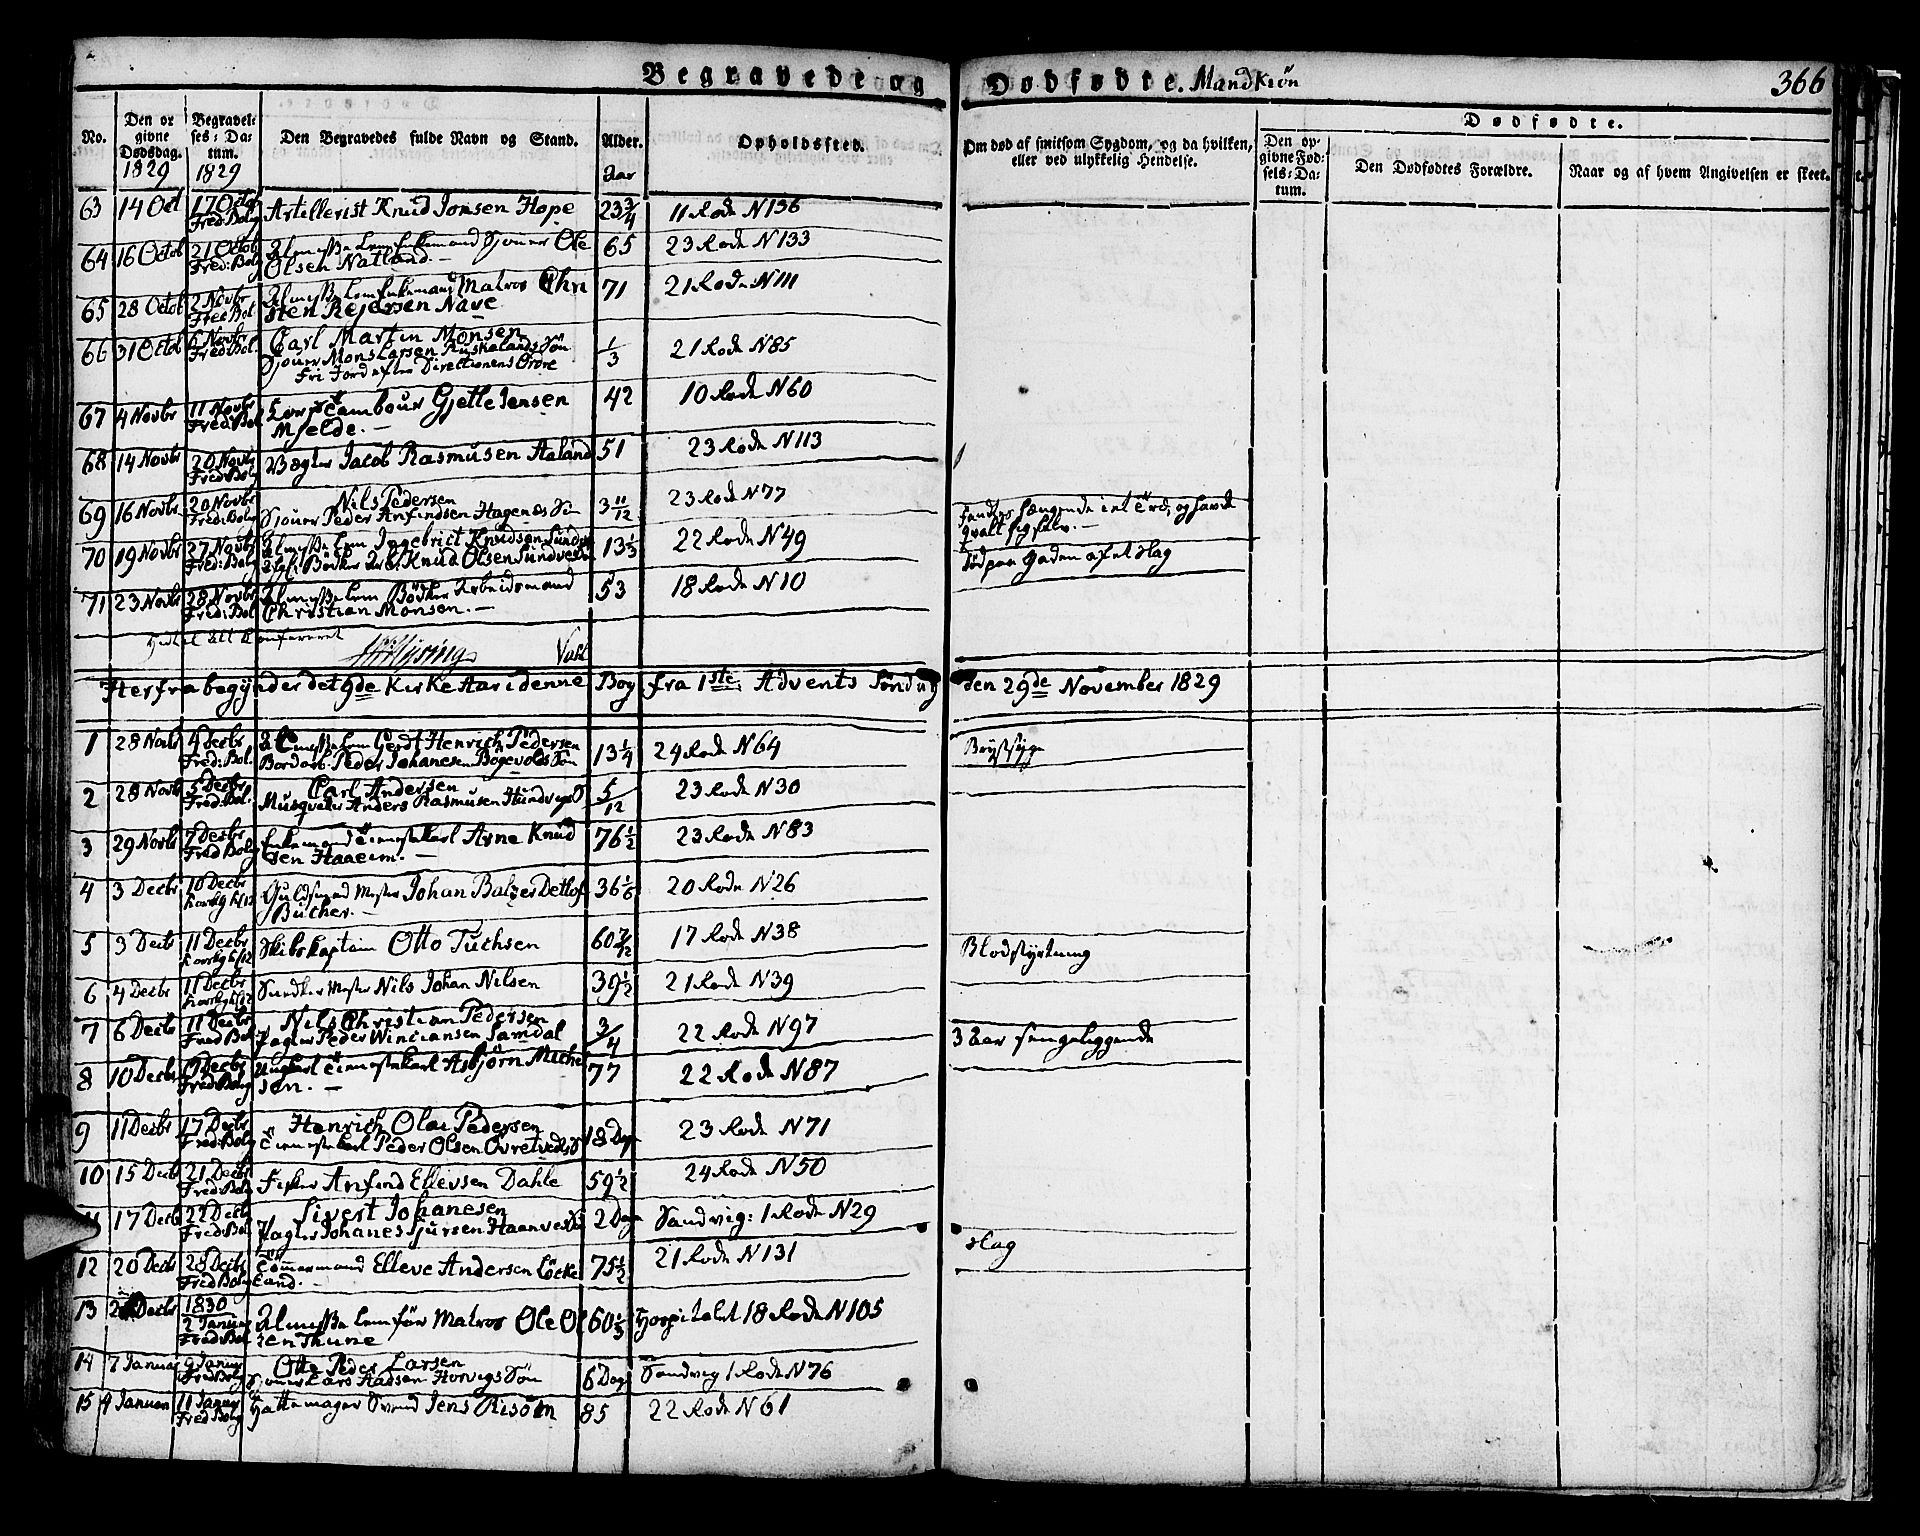 Begravede og Dødfødte. Mandkiön 366
No. Den opgivne Dødsdag. 1829 Begravelses-Datum. 1829 Den Begravedes fulde Navn og Stand. Alder. Aar Opholdssted. Om død af smitsom Sygdom, og da hvilken, eller ved ulykkelig Hendelse. Dødfødte. Den opgivne Fødsels-Datum. Den Dødfødtes Forældre. Naar og af hvem Angivelsen er skeet.
63 14 Oct 17 Octb Fred: Bolg Artillerist Knud Jonsen Hope 23 3/4 11 Rode N 136
64 16 Octob 21 Octob Fred: Bolg Almisse Lem Enkemand Sjouer Ole
Olsen Natland.- 65 23 Rode N 133
65 28 Octob 2 Novbr Fred Bol Almisse Lem Enkemand Matros Chri
sten Rejersen Nave 71 21 Rode N 111
66 31 Octob 6 Novbr Fred Bol. Carl Martin Monsen
Sjouer Mons Larsen Kuskelands Sön
Fri Jord efter Directionens Ordre 1/3 21 Rode N 85
67 4 Novbr 11 Novbr Fred: Bol Corps Tambour Gjetle Jensen
Mjelde.- 42 10 Rode N 60
68 14 Novbr 20 Novbr Fred: Bolg Vægter Jacob Rasmusen Aaland 51 23 Rode N 113
69 16 Novbr 20 Novbr Fred: Bolg Nils Pedersen
Sjouer Peder Anfindsen Hagenæs Sön 3 11/12 23 Rode N 77 Fandtes hængende i et Törd, og havde
qvalt sig selv.-
70 19 Novbr 27 Novbr Fred: Bolg Almisse Lem Ingebrict Knudsen Sundv
Knud Olsen Sundv 13 1/3 22 Rode N 49 Död paa Gaden af et Slag
71 23 Novbr 28 Novbr Fred: Bol Almisse Lem Bödker Arbeidsmand
Christian Monsen.- 53 18 Rode N 10
Herfra begÿnder det 9de Kirke Aar i denne Bog fra 1ste Advents Söndag den 29de November 1829
1 28 Novb 4 Decbr Fred: Bol. Almisse Lem Gerdt Henrich Pedersen
Bordarb: Peder Johanesen Bogevolds Sön 13 1/4 24 Rode N 64 Brystsyge
2 28 Novb 5 Decbr Fred: Bol. Carl Andersen
Musqueter Anders Rasmusen Hundvegs S 5/12 23 Rode N 30
3 29 Novbr 7 Decbr Fred Bolg Enkemand Tienestekarl Arne Knud
sen Haaeim.- 76 1/2 23 Rode N 83
4 3 Decbr 10 Decbr Guldsmed Mester Johan Balzer Detlof
Bücher.- 36 1/6 20 Rode N 26
5 3 Decbr 11 Decbr Skibskaptain Otto Tuchsen 60 7/12 17 Rode N 38 Blodstyrtning
6 4 Decbr 11 Decbr Snedker Mester Nils Johan Nilsen 39 1/2 21 Rode N 39
7 6 Decbr 11 Decbr Fred Bol Nils Christian Pedersen
Dagler Peder Winciansen Samdal 3/4 22 Rode N 97 3 Aar sengeliggende
8 10 Decbr Decbr Fred Bolg Ungkarl Tienestekarl Asbjörn Michel
sen.- 77 22 Rode N 87
9 11 Decbr 17 Decbr Fred: Bolg Henrich Olai Pedersen
Tienestekarl Peder Olsen Övretvedts S 18 Dage 23 Rode N 71
10 15 Decb 21 Decbr Fred: Bolg Fisker Anfind Ellevsen Dahle 59 1/2 24 Rode N 50
17 Decb 22 Decb Fred Bol Sivert Johanesen
Dagler Johanes Sjursen Haanves Sö 2 Dage Sandvig: 1 Rode N 29
12 20 Decbr 28 Decbr Fred Bolg Tömmermand Elleve Andersen Löcke
land.- 75 1/2 21 Rode N 131 Slag
13 Decbr 1830 2 Januar Fred Bol Almisse Lem för Matros Ole Ol
sen Thune 60 1/3 Hospitalet 18 Rode N 105
14 7 Januar 9 Januar Fred Bolg Otto Peder Larsen
Sjouer Lars Hansen Horvigs Sön 6 Dage Sandvig 1 Rode N 76
15 9 Januar 11 Januar Fred Bolg Hattemager Svend Jens Risöen 85 22 Rode N 61